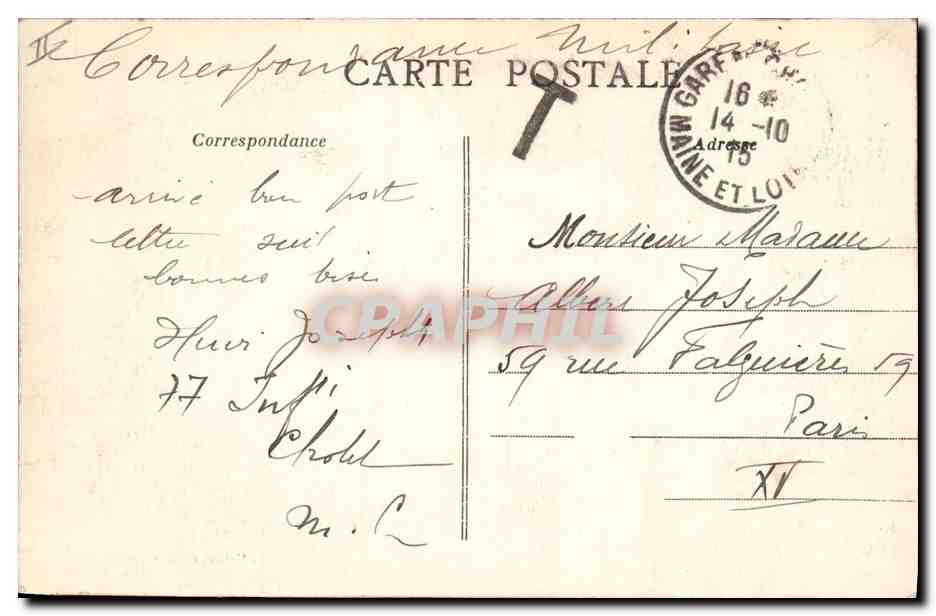 Correspondance Militaire
CARTE POSTALE
T
GARE
16
14 -10
15
MAINE ET LOIR
Correspondance
Adresse
arrivé bon port
lettre suit
bonnes bises
Henri Joseph
77 Inf
Cholet
M. L
Monsieur Madame
Albert Joseph
59 rue Falguières 59
Paris
XV
CPAPHIL